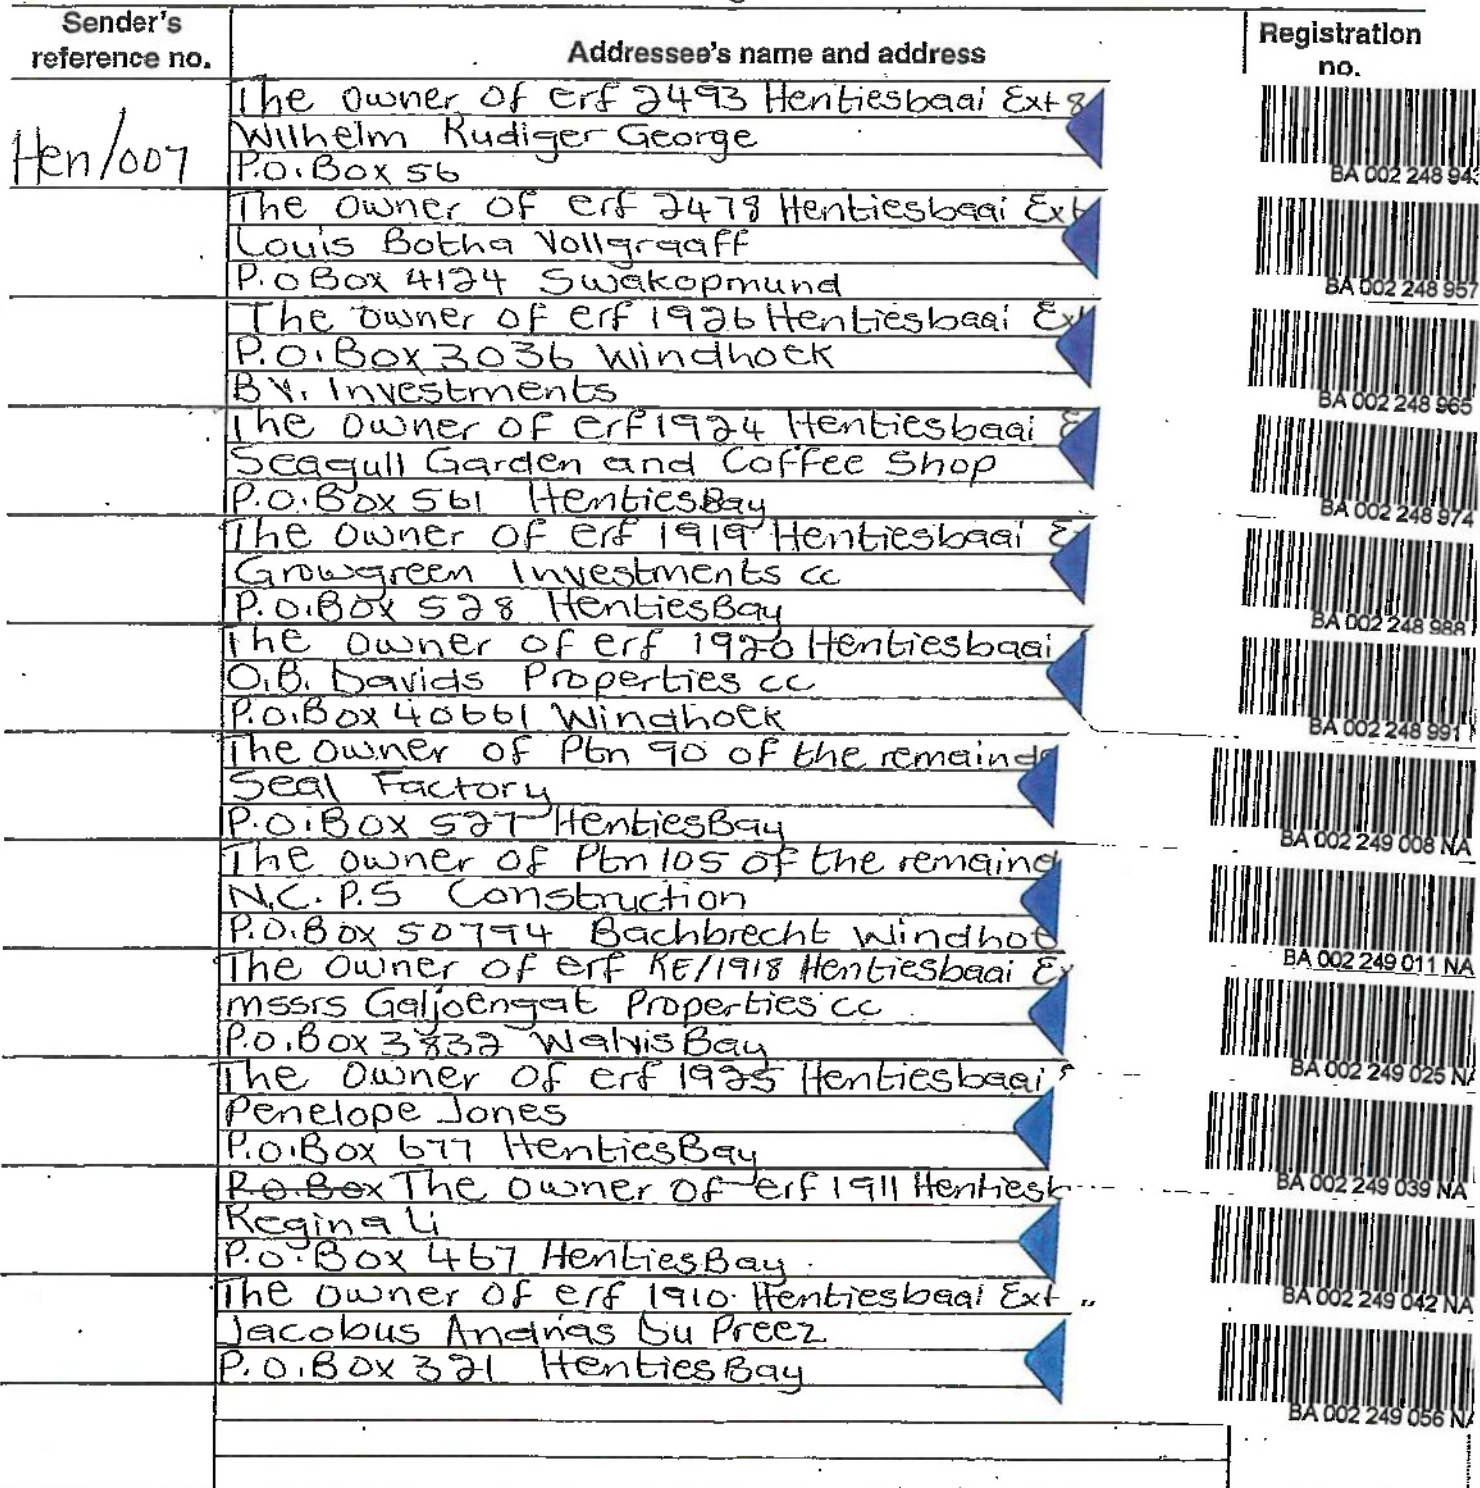 Sender's reference no.
Addressee's name and address
Registration no.
Hen/007
The owner of erf 2493 Hentiesbaai Ext 8
Wilhelm Rudiger George
P.O.Box 56
BA 002 248 943
The owner of erf 2478 Hentiesbaai Ext
Louis Botha Vollgraaff
P.O Box 4124 Swakopmund
BA 002 248 957
The owner of erf 1926 Hentiesbaai Ext
P.O.Box 3036 Windhoek
BV. Investments
BA 002 248 965
The owner of erf 1924 Hentiesbaai E
Seagull Garden and Coffee Shop
P.O.Box 561 HentiesBay
BA 002 248 974
The owner of erf 1919 Hentiesbaai E
Growgreen Investments cc
P.O.Box 528 HentiesBay
BA 002 248 988
The owner of erf 1920 Hentiesbaai
O.B. Davids Properties cc
P.O.Box 40661 Windhoek
BA 002 248 991
The owner of Ptn 90 of the remaind
Seal Factory
P.O.Box 527 HentiesBay
BA 002 249 008 NA
The owner of Ptn 105 of the remaind
N.C.P.S Construction
P.O.Box 50794 Bachbrecht Windhoe
BA 002 249 011 NA
The owner of erf RE/1918 Hentiesbaai Ex
mssrs Galjoengat Properties cc
P.O.Box 3832 WalvisBay
BA 002 249 025 NA
The owner of erf 1925 Hentiesbaai
Penelope Jones
P.O.Box 677 HentiesBay
BA 002 249 039 NA
P.O.Box The owner of erf 1911 Hentiesb
Regina Li
P.O.Box 467 HentiesBay
BA 002 249 042 NA
The owner of erf 1910 Hentiesbaai Ext
Jacobus Andrias Du Preez
P.O.Box 321 HentiesBay
BA 002 249 056 NA